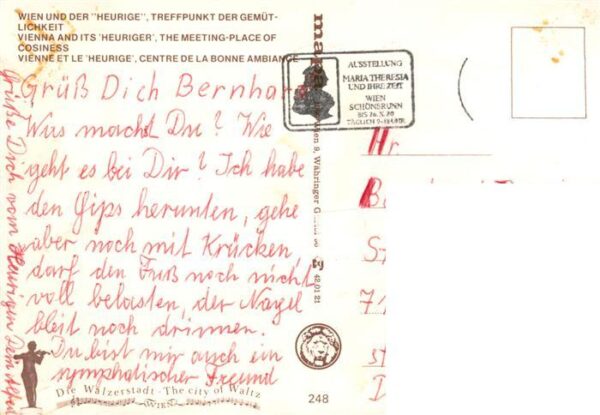 WIEN UND DER "HEURIGE", TREFFPUNKT DER GEMÜT-
LICHKEIT
VIENNA AND ITS 'HEURIGER', THE MEETING-PLACE OF
COSINESS
VIENNE ET LE 'HEURIGE', CENTRE DE LA BONNE AMBIANCE
AUSSTELLUNG
MARIA THERESIA
UND IHRE ZEIT
WIEN
SCHÖNBRUNN
BIS 26. X. 80
TÄGLICH 9-18 UHR
Grüß Dich Bernhard
Was machst Du? Wie
geht es bei Dir? Ich habe
den Gips herunten, gehe
aber noch mit Krücken,
darf den Fuß noch nicht
voll belasten, der Nagel
bleit noch drinnen.
Du bist mir auch ein
symphatischer Freund
Grüße Dich vom Heurigen Dem
Wien 9, Währinger
42 01 21
Hr.
Die Walzerstadt - The city of Waltz
WIEN
248